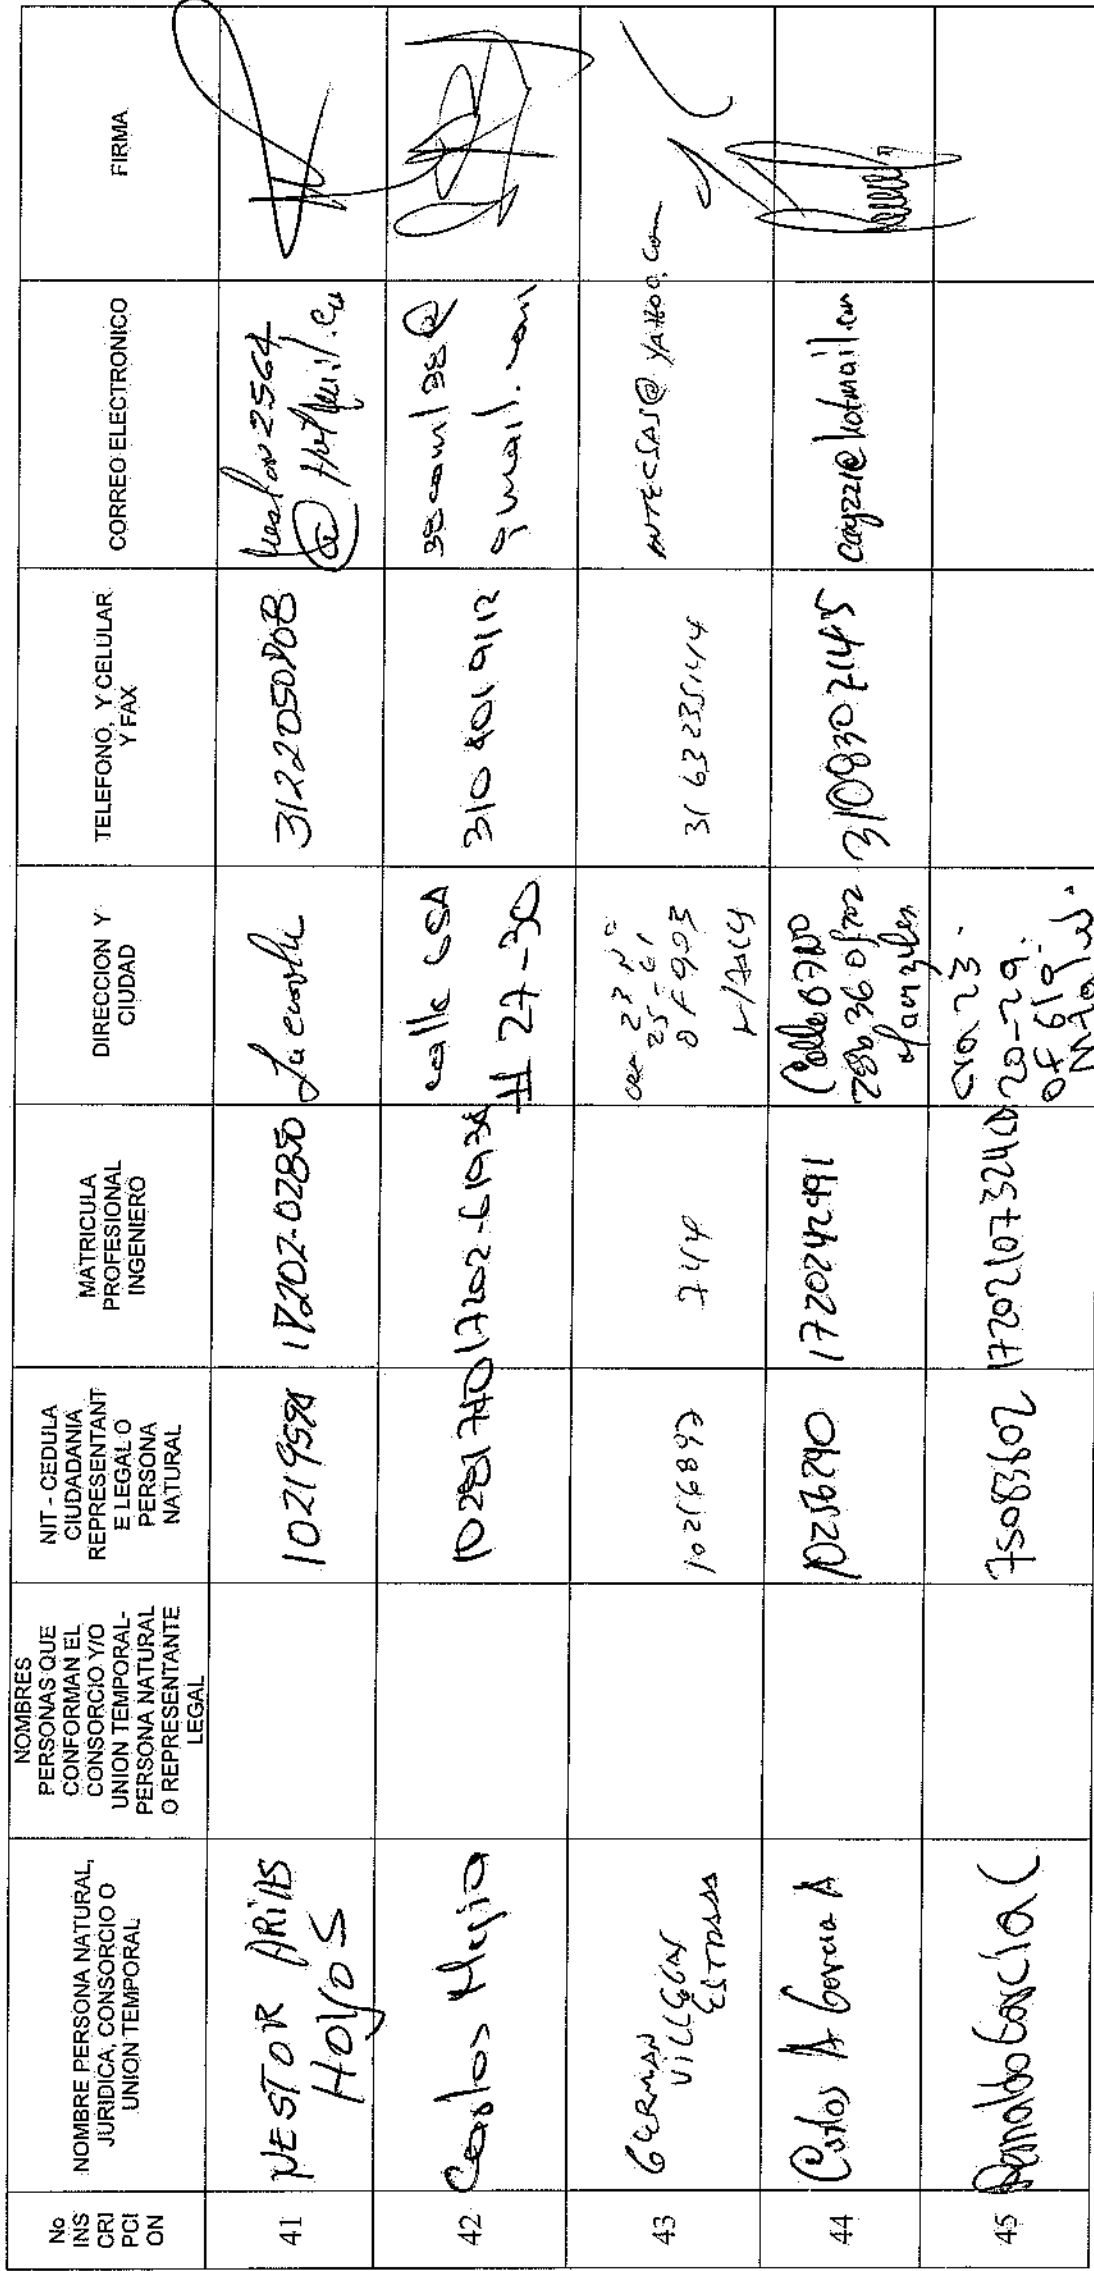 No INS CRI PCI ON
NOMBRE PERSONA NATURAL, JURIDICA, CONSORCIO O UNION TEMPORAL
NOMBRES PERSONAS QUE CONFORMAN EL CONSORCIO Y/O UNION TEMPORAL- PERSONA NATURAL O REPRESENTANTE LEGAL
NIT - CEDULA CIUDADANIA REPRESENTANT E LEGAL O PERSONA NATURAL
MATRICULA PROFESIONAL INGENIERO
DIRECCION Y CIUDAD
TELEFONO, Y CELULAR Y FAX
CORREO ELECTRONICO
FIRMA
41
NESTOR ARIAS
HOYOS
10219594
17202-02850
3122050808
nestor2564
@ Hotmail.co
42
Carlos Mejia
10281740
17202-61938
calle 65A
# 27-30
3108019112
38caml38@
gmail.com
43
GERMAN
VILLEGAS
ESTRADA
10216897
744
Cra 23 Nº
25-61
OF 903
3163235144
ANTECSAS@YAHOO.COM
44
Carlos A Garcia A
10256290
1720242491
Calle 67 No
28b 36 of 702
Manizales
3108307145
cagzz1@hotmail.com
45
Garcia C
75083602
17202107324CD
Cra 23
20-29.
OF 619